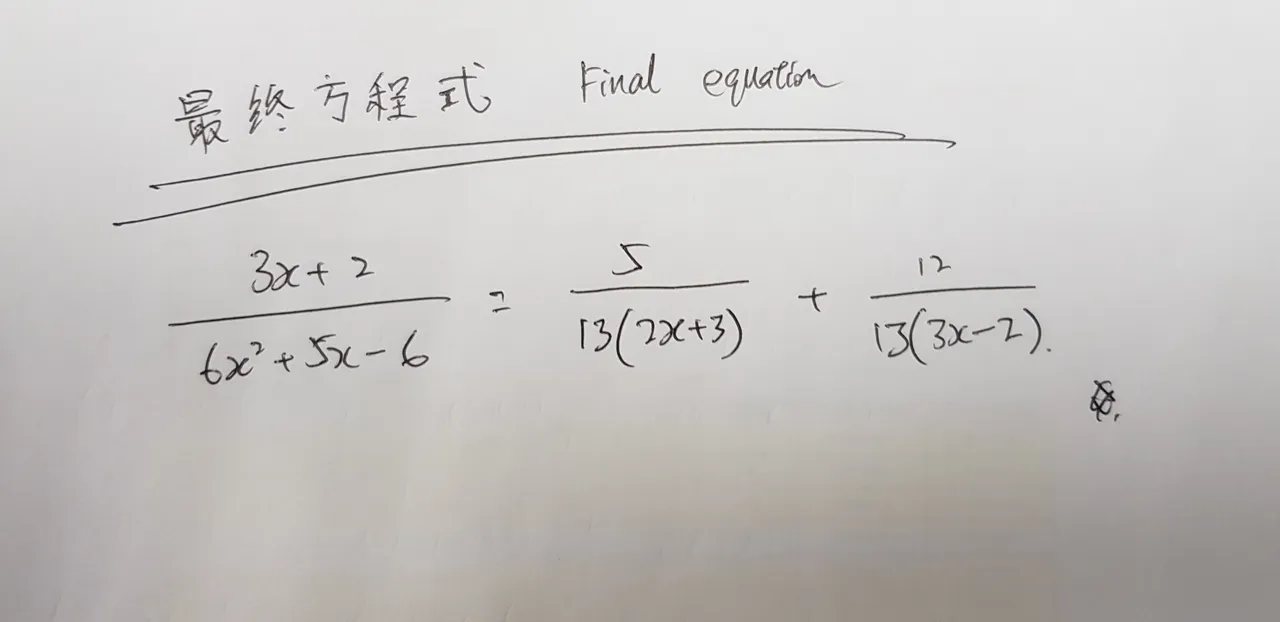 最终方程式 Final equation
3x+2 / 6x²+5x-6 = 5 / 13(2x+3) + 12 / 13(3x-2).